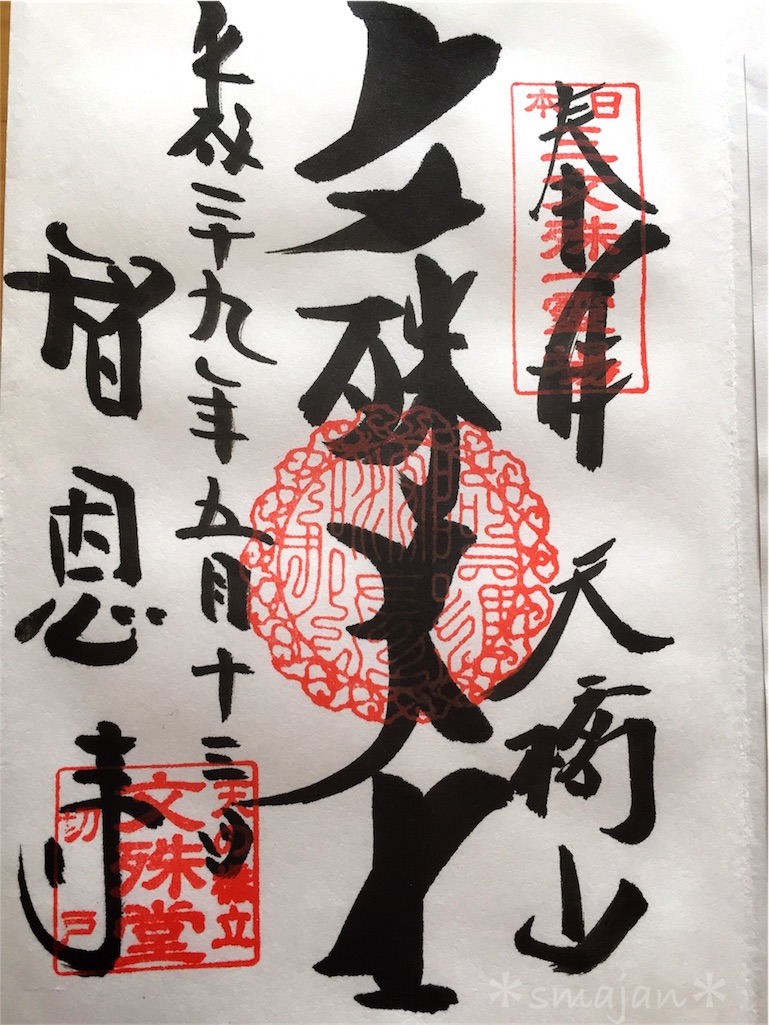 奉拝
日本
三文殊一霊
天橋山
文殊大士
平成二十九年五月十三日
智恩寺
天の橋立
文殊堂
切戸
*smajan*